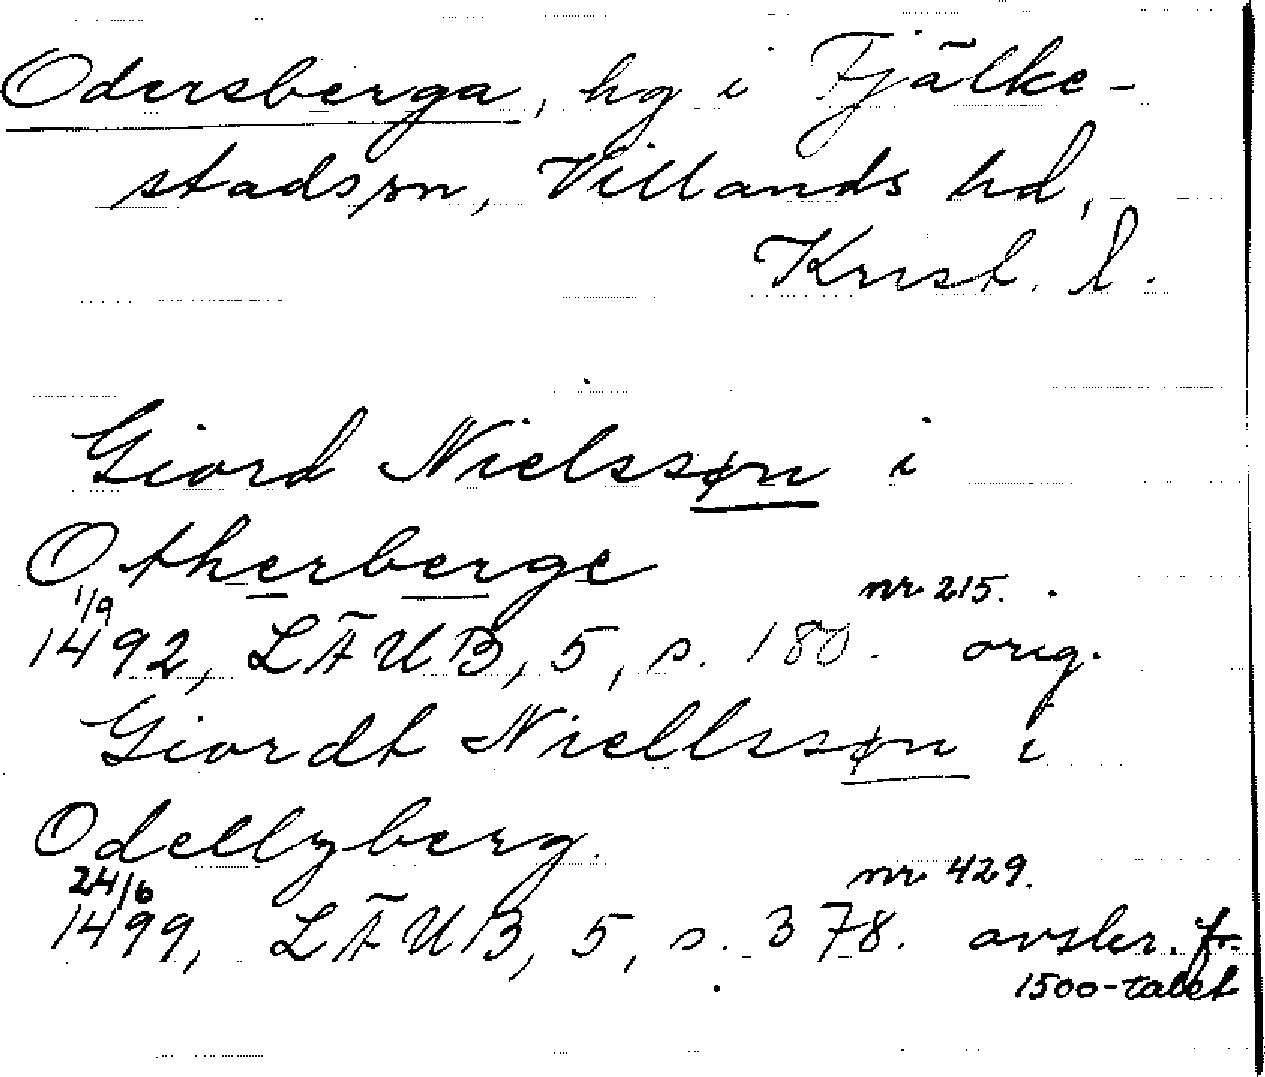 Odersberga, hg i Fjälke-
stadssn, Villands hd,
Krist. l.
Giord Nielssøn i
Otherberge
1/9 nr 215.
1492, LÄUB, 5, s. 180. orig.
Giordt Niellssøn i
Odellzberg.
24/6 nr 429.
1499, LÄUB, 5, s. 378. avskr. fr.
1500-talet